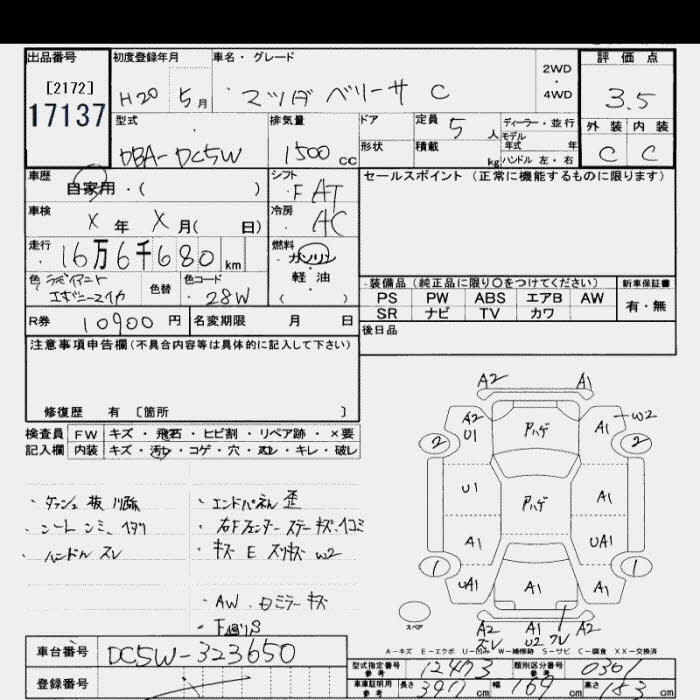 出品番号 初度登録年月 車名・グレード 評価点
[2172] H20 5月 マツダ ベリーサ C 2WD・4WD 3.5
17137
型式 排気量 ドア 定員 5人 ディーラー・並行 外装 内装
モデル
DBA-DC5W 1500cc 形状 積載 kg 年式 年 C C
ハンドル 左・右
車歴 シフト セールスポイント (正常に機能するものに限ります)
自家用・( ) F AT
車検 冷房
X 年 X 月( 日) AC
走行 燃料
16万6千680 km ガソリン
色 色替 色コード 軽油 装備品 (純正品に限り○をつけてください) 新車保証書
28W ( ) PS PW ABS エアB AW 有・無
SR ナビ TV カワ
R券 10900円 名変期限 月 日 後日品
注意事項申告欄(不具合内容等は具体的に記入して下さい)
修復歴 有 [箇所 ]
検査員 FW キズ・飛石・ヒビ割・リペア跡・×要
記入欄 内装 キズ・汚レ・コゲ・穴・スレ・キレ・破レ
A2 A1
A2 U1 Pハゲ A1 W2
2 2
U1 Pハゲ A1
A1 UA1
1 1
UA1 A1 A1
A2 A1 A2
スレ U2 スレ
スペア
・エンドパネル 歪
・シート シミ、
・ハンドル スレ ・キズ E スリキズ W2
・AW、ロミラー キズ
・下廻りS
A-キズ E-エクボ U-凹み W-補修跡 S-サビ C-腐食 XX-交換済
車台番号 DC5W-323650
登録番号
型式指定番号 参考 12473 類別区分番号 参考 0361
車庫証明用 参考 長さ 397cm 幅 169cm 高さ 153cm